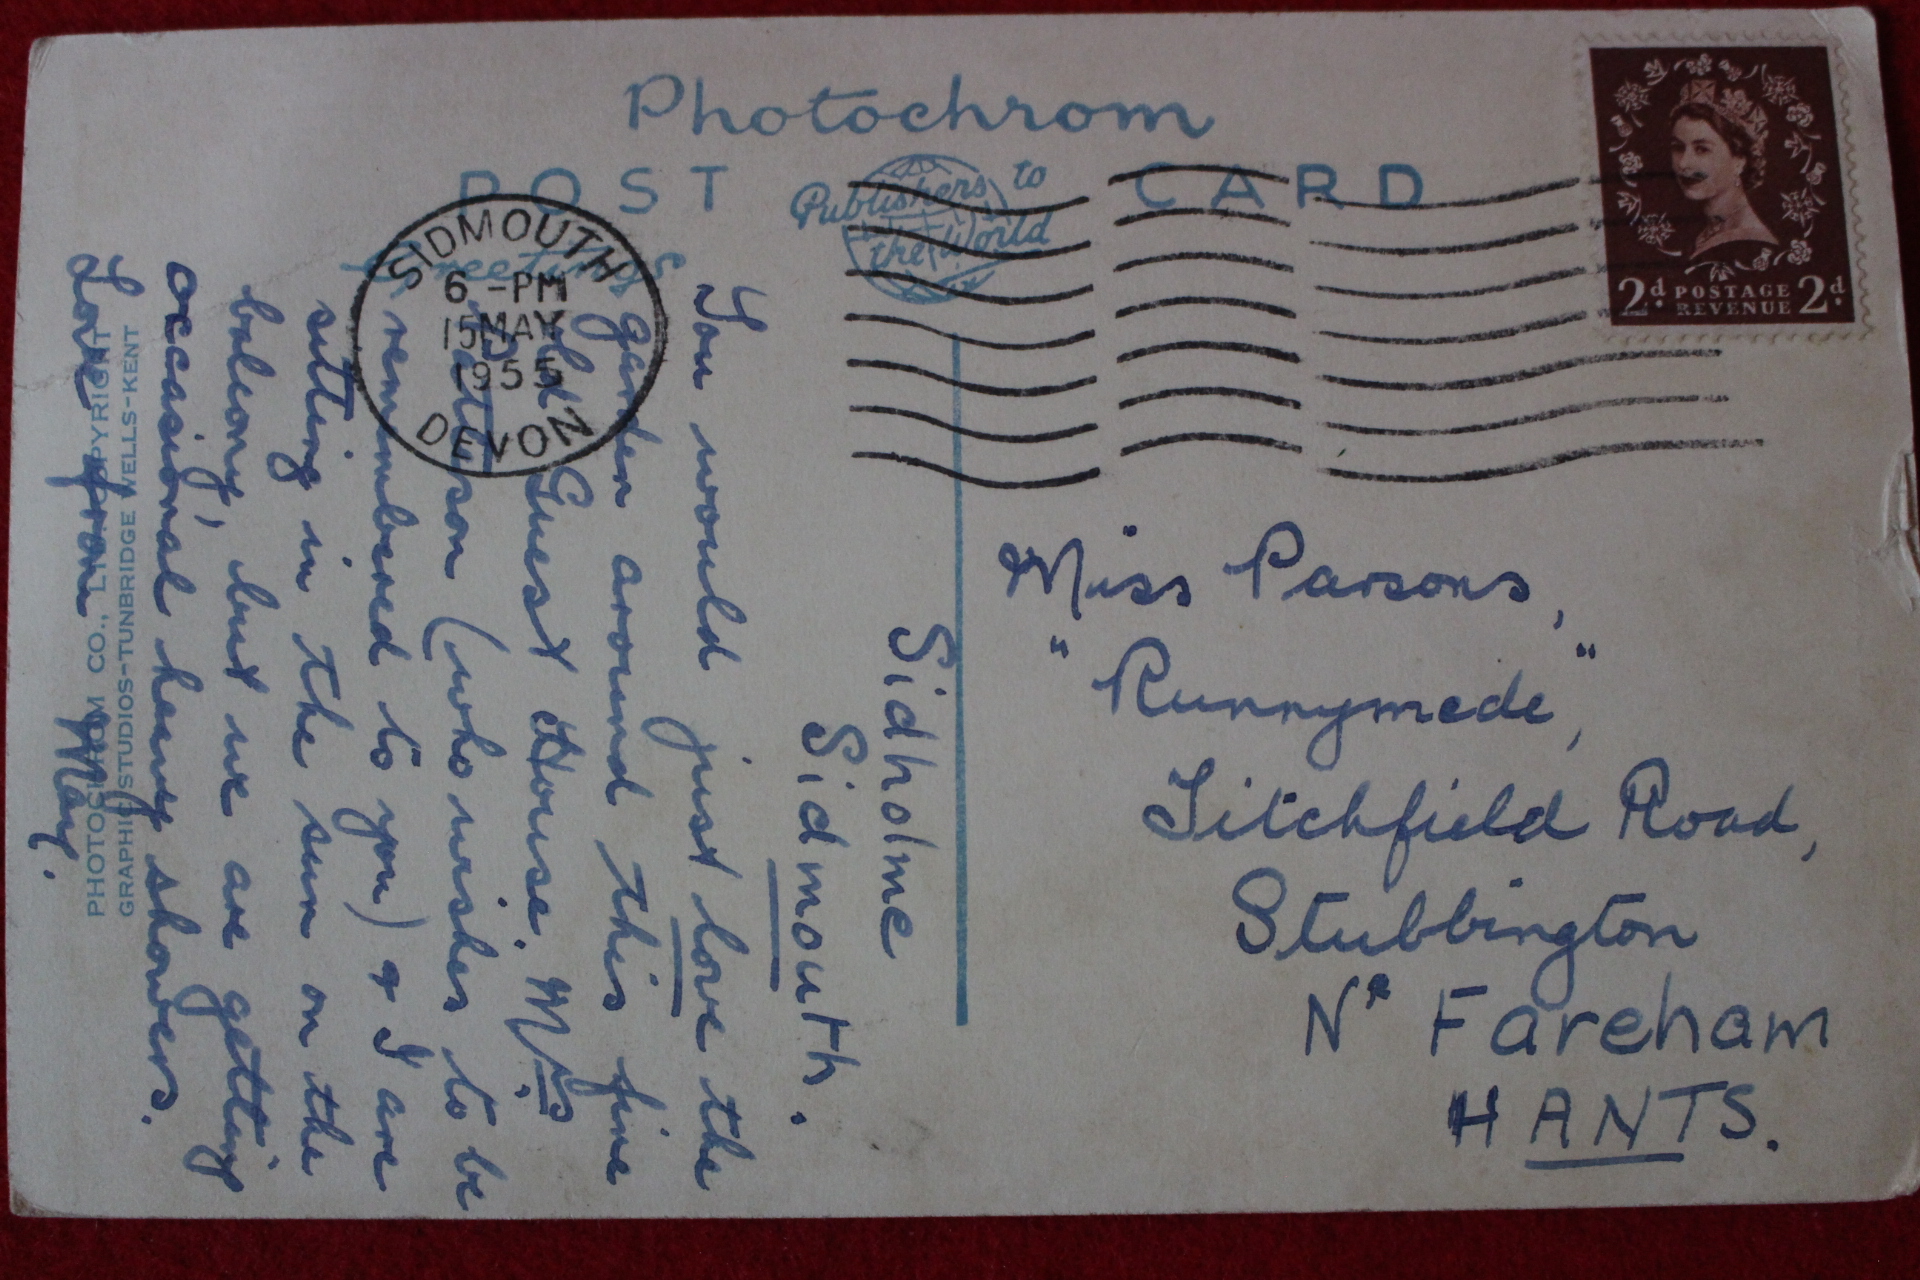 Photochrom
POST CARD
Publishers to
the World
Greetings
SIDMOUTH
6 - PM
15 MAY
1955
DEVON
2d POSTAGE 2d
REVENUE
Sidholme
Sidmouth.
You would just love the
garden around this fine
old Guest House. Mrs
son (who wishes to be
remembered to you) & I are
sitting in the sun on the
balcony, but we are getting
occasional heavy showers.
Love from May.
Miss Parsons,
"Runnymede,"
Titchfield Road,
Stubbington
Nr Fareham
HANTS.
PHOTOCHROM CO., LTD. COPYRIGHT
GRAPHIC STUDIOS-TUNBRIDGE WELLS-KENT